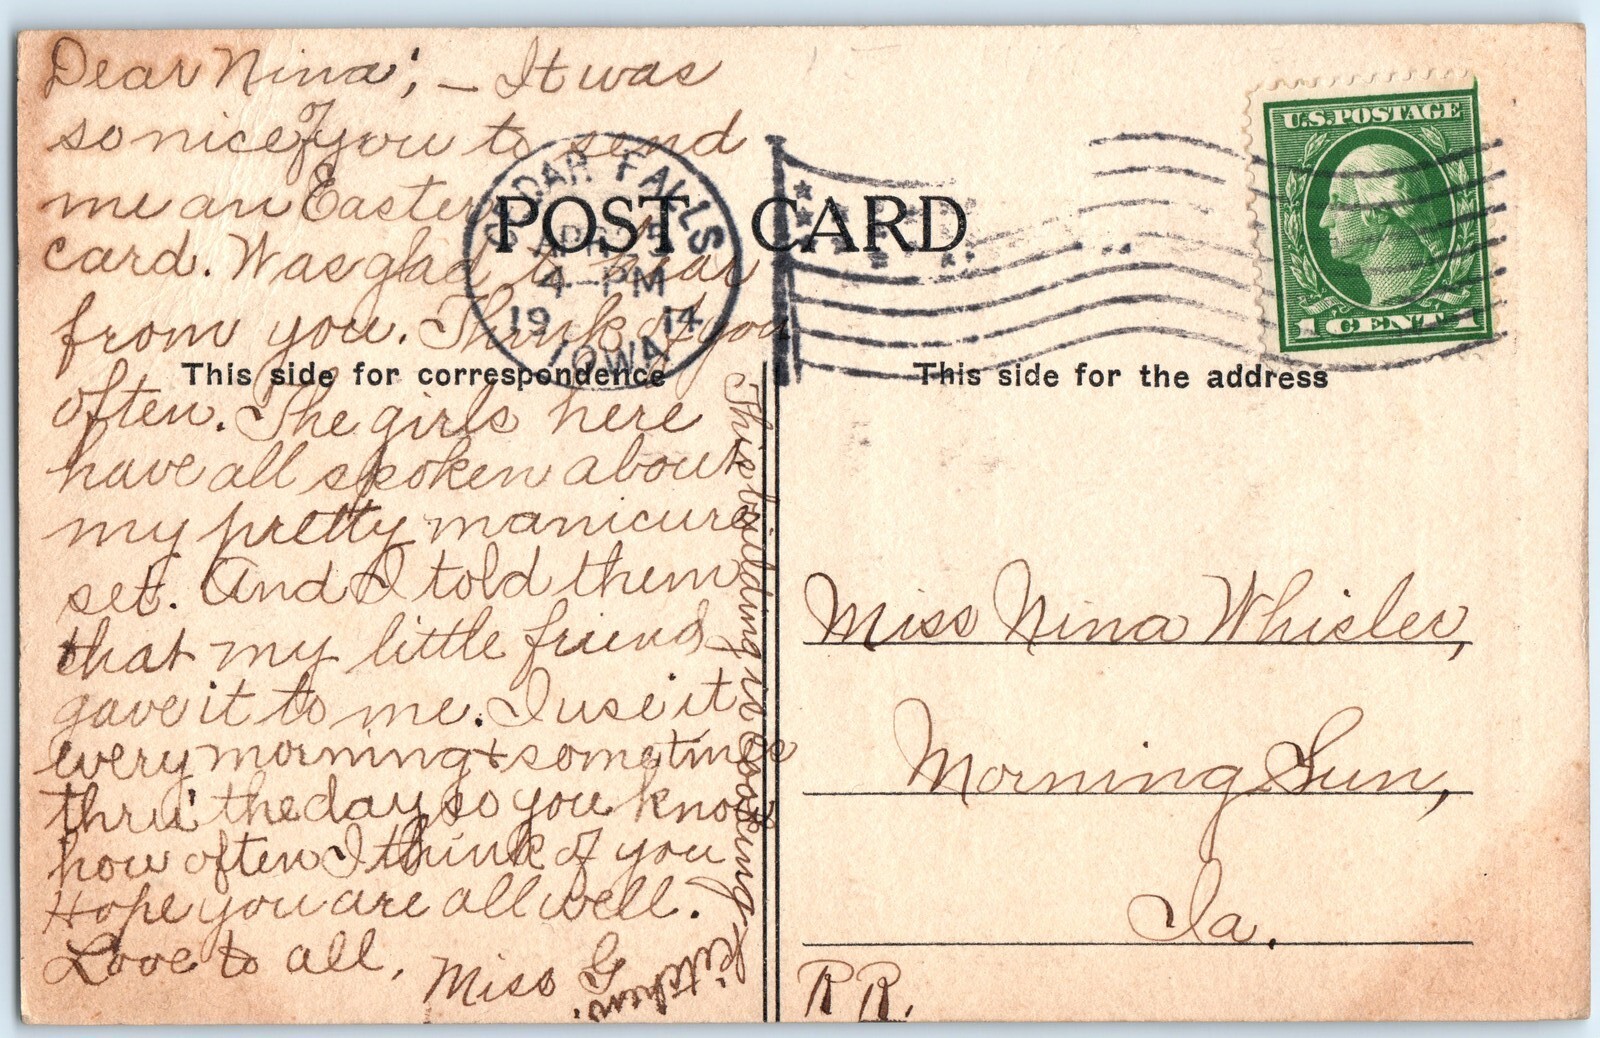 Dear Nina; — It was
so nice of you to send
me an Easter
card. Was glad to hear
from you. Think of you
often. The girls here
have all spoken about
my pretty manicure
set. And I told them
that my little friend
gave it to me. I use it
every morning & sometimes
thru' the day so you know
how often I think of you
Hope you are all well.
Love to all,
Miss G
This building is cooking
kitchen.
POST CARD
CEDAR FALLS
APR
4-PM
1914
IOWA
U.S. POSTAGE
1 CENT 1
This side for correspondence
This side for the address
Miss Nina Whisler,
Morning Sun,
Ia.
R R.